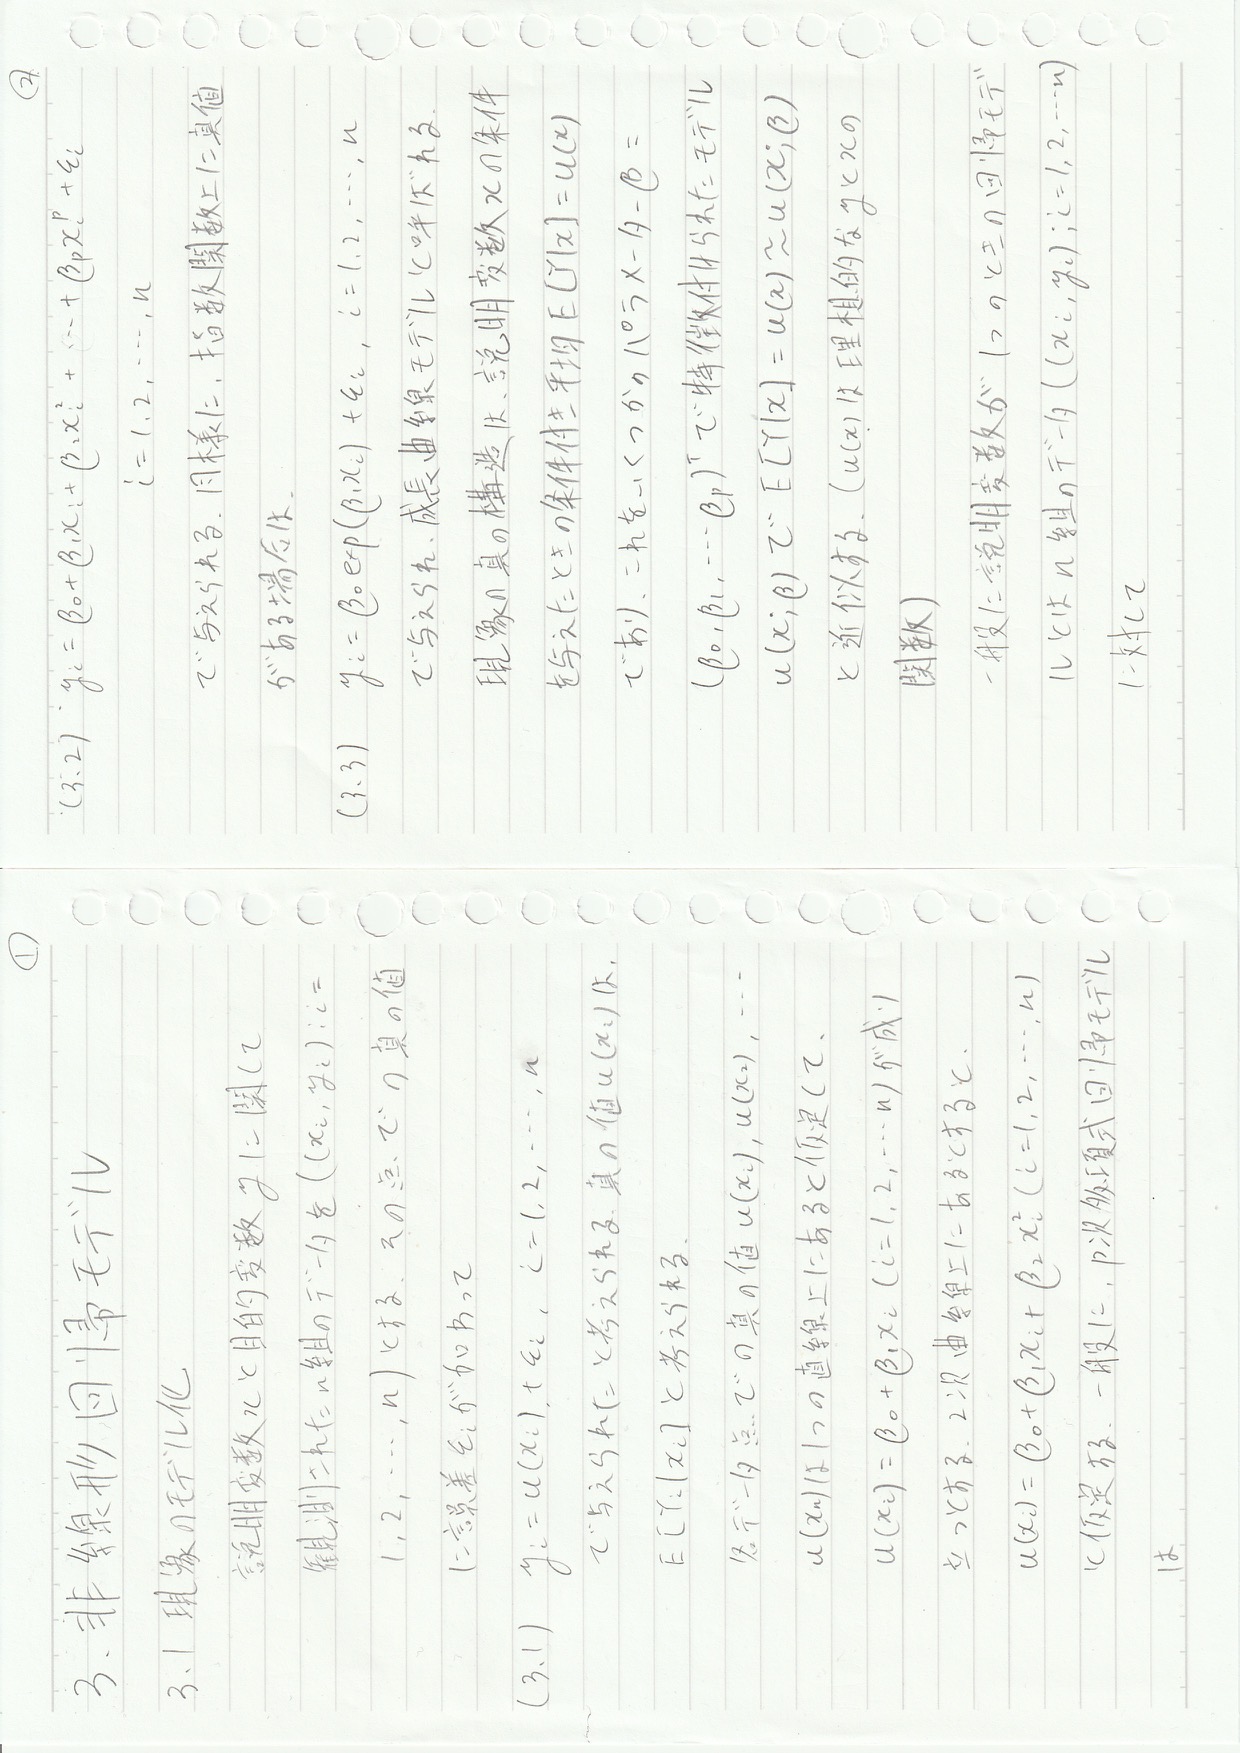 ①
3. 非線形回帰モデル
3.1 現象のモデル化
説明変数xと目的変数yに関して
観測されたn組のデータを((xi, yi):i=
1,2,…,n)とする. その点での真の値
に誤差εiが加わって
(3.1) yi=u(xi)+εi, i=1,2,…,n
で与えられたと考えられる. 真の値u(xi)は,
E[Yi|xi]と考えられる.
各データ点での真の値u(xi), u(x2), …
u(xn)は1つの直線上にあると仮定して,
u(xi)=β0+β1xi (i=1,2,…n)が成り
立つとする. 2次曲線上にあるとすると,
u(xi)=β0+β1xi+β2xi² (i=1,2,…,n)
と仮定する. 一般に, p次多項式回帰モデル
は
②
(3.2) yi=β0+β1xi+β2xi²+…+βpxi^p+εi
i=1,2,…,n
で与えられる. 同様に, 指数関数上に真値
がある場合は,
(3.3) yi=β0exp(β1xi)+εi, i=1,2,…,n
で与えられ, 成長曲線モデルと呼ばれる.
現象の真の構造は, 説明変数xの条件
を与えたときの条件付き平均E[Y|x]=u(x)
であり, これをいくつかのパラメーターβ=
(β0,β1,…βp)ᵀで特徴付けられたモデル
u(x;β)でE[Y|x]=u(x)≈u(x;β)
と近似する. (u(x)は理想的なyとxの
関数)
一般に説明変数が1つのときの回帰モデ
ルとはn組のデータ((xi,yi);i=1,2,…n)
に対して